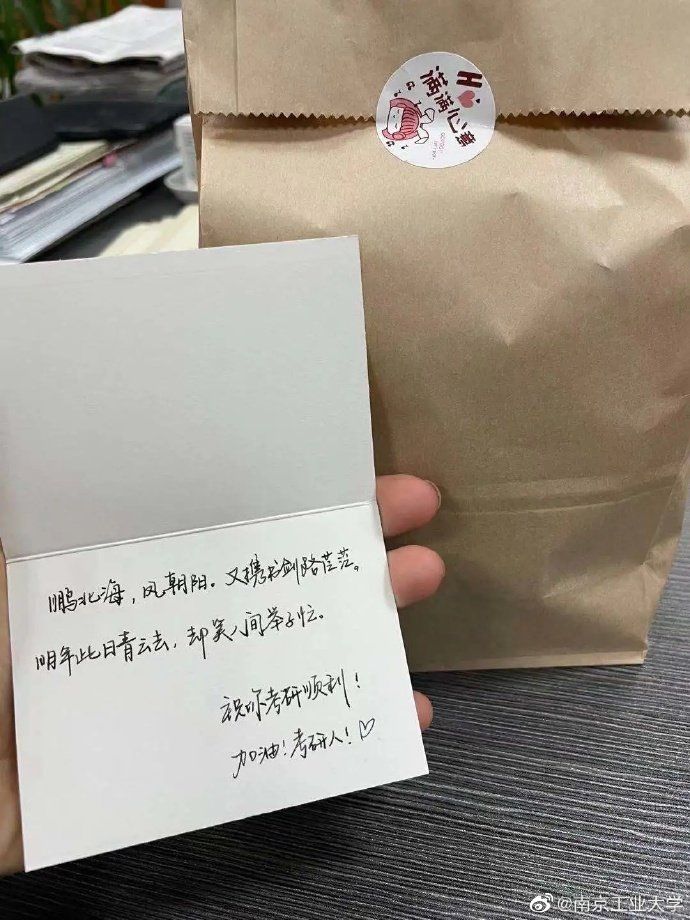 Hi
满满心意
鹏北海，凤朝阳。又携书剑路茫茫。
明年此日青云去，却笑人间举子忙。
祝你考研顺利！
加油！考研人！♡
@南京工业大学